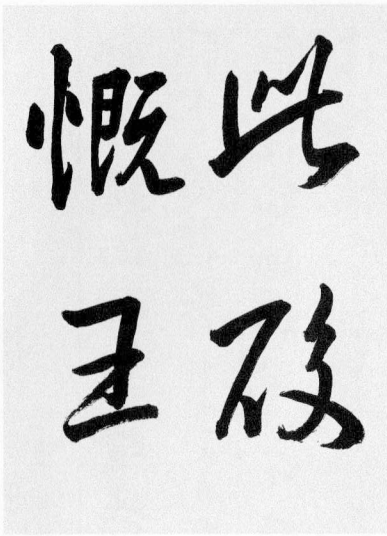 此破
慨王